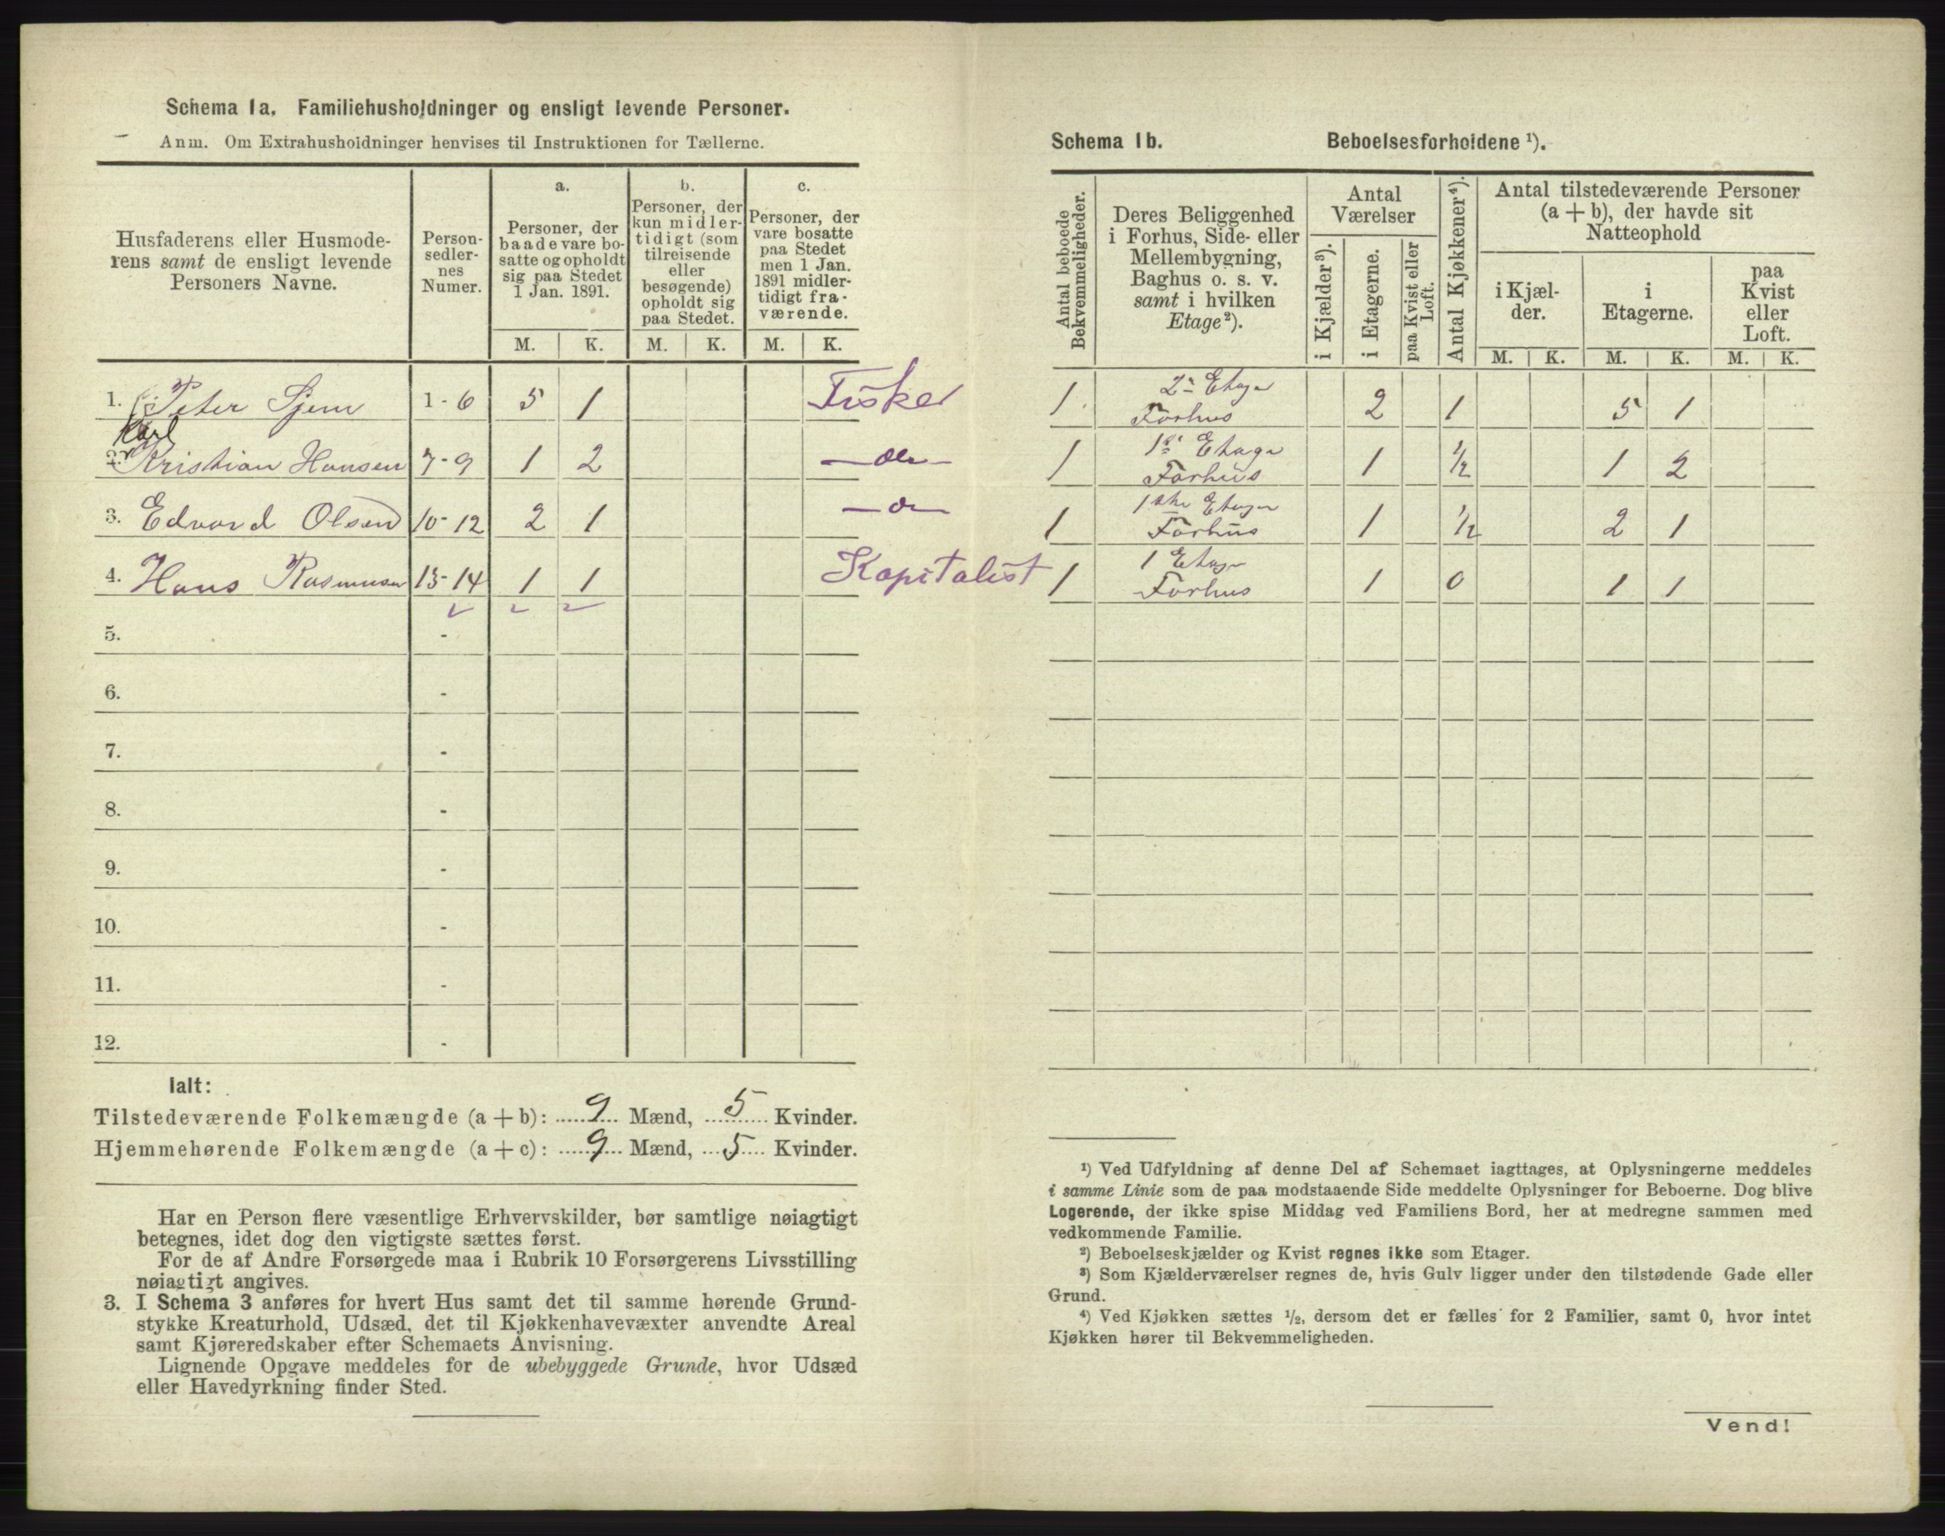 Schema 1a. Familiehusholdninger og ensligt levende Personer.
Anm. Om Extrahusholdninger henvises til Instruktionen for Tællerne.
Husfaderens eller Husmode-
rens samt de ensligt levende
Personers Navne.
Person-
sedler-
nes
Numer.
a.
Personer, der
baade vare bo-
satte og opholdt
sig paa Stedet
1 Jan. 1891.
b.
Personer, der
kun midler-
tidigt (som
tilreisende
eller
besøgende)
opholdt sig
paa Stedet.
c.
Personer, der
vare bosatte
paa Stedet
men 1 Jan.
1891 midler-
tidigt fra-
værende.
M. K. M. K. M. K.
1. Peter Sjem 1-6 5 1 Fisker
Karl
2. Kristian Hansen 7-9 1 2 — do —
3. Edvard Olsen 10-12 2 1 — do —
4. Hans Rasmussen 13-14 1 1 Kapitalist
5. -
6. -
7. -
8. -
9. -
10. -
11. -
12. -
Ialt:
Tilstedeværende Folkemængde (a + b): 9 Mænd, 5 Kvinder.
Hjemmehørende Folkemængde (a + c): 9 Mænd, 5 Kvinder.
Har en Person flere væsentlige Erhvervskilder, bør samtlige nøiagtigt
betegnes, idet dog den vigtigste sættes først.
For de af Andre Forsørgede maa i Rubrik 10 Forsørgerens Livsstilling
nøiagtigt angives.
3. I Schema 3 anføres for hvert Hus samt det til samme hørende Grund-
stykke Kreaturhold, Udsæd, det til Kjøkkenhavevæxter anvendte Areal
samt Kjøreredskaber efter Schemaets Anvisning.
Lignende Opgave meddeles for de ubebyggede Grunde, hvor Udsæd
eller Havedyrkning finder Sted.
Schema 1b. Beboelsesforholdene ¹).
Antal beboede
Bekvemmeligheder.
Deres Beliggenhed
i Forhus, Side- eller
Mellembygning,
Baghus o. s. v.
samt i hvilken
Etage²).
Antal
Værelser
i Kjælder³).
i Etagerne.
paa Kvist eller
Loft.
Antal Kjøkkener⁴).
Antal tilstedeværende Personer
(a + b), der havde sit
Natteophold
i Kjæl-
der.
i
Etagerne.
paa
Kvist
eller
Loft.
M. K. M. K. M. K.
2den Etage
1 Forhus 2 1 5 1
1ste Etage
1 Forhus 1 ½ 1 2
1ste Etage
1 Forhus 1 ½ 2 1
1 Etage
1 Forhus 1 0 1 1
¹) Ved Udfyldning af denne Del af Schemaet iagttages, at Oplysningerne meddeles
i samme Linie som de paa modstaaende Side meddelte Oplysninger for Beboerne. Dog blive
Logerende, der ikke spise Middag ved Familiens Bord, her at medregne sammen med
vedkommende Familie.
²) Beboelseskjælder og Kvist regnes ikke som Etager.
³) Som Kjælderværelser regnes de, hvis Gulv ligger under den tilstødende Gade eller
Grund.
⁴) Ved Kjøkken sættes ½, dersom det er fælles for 2 Familier, samt 0, hvor intet
Kjøkken hører til Bekvemmeligheden.
Vend!